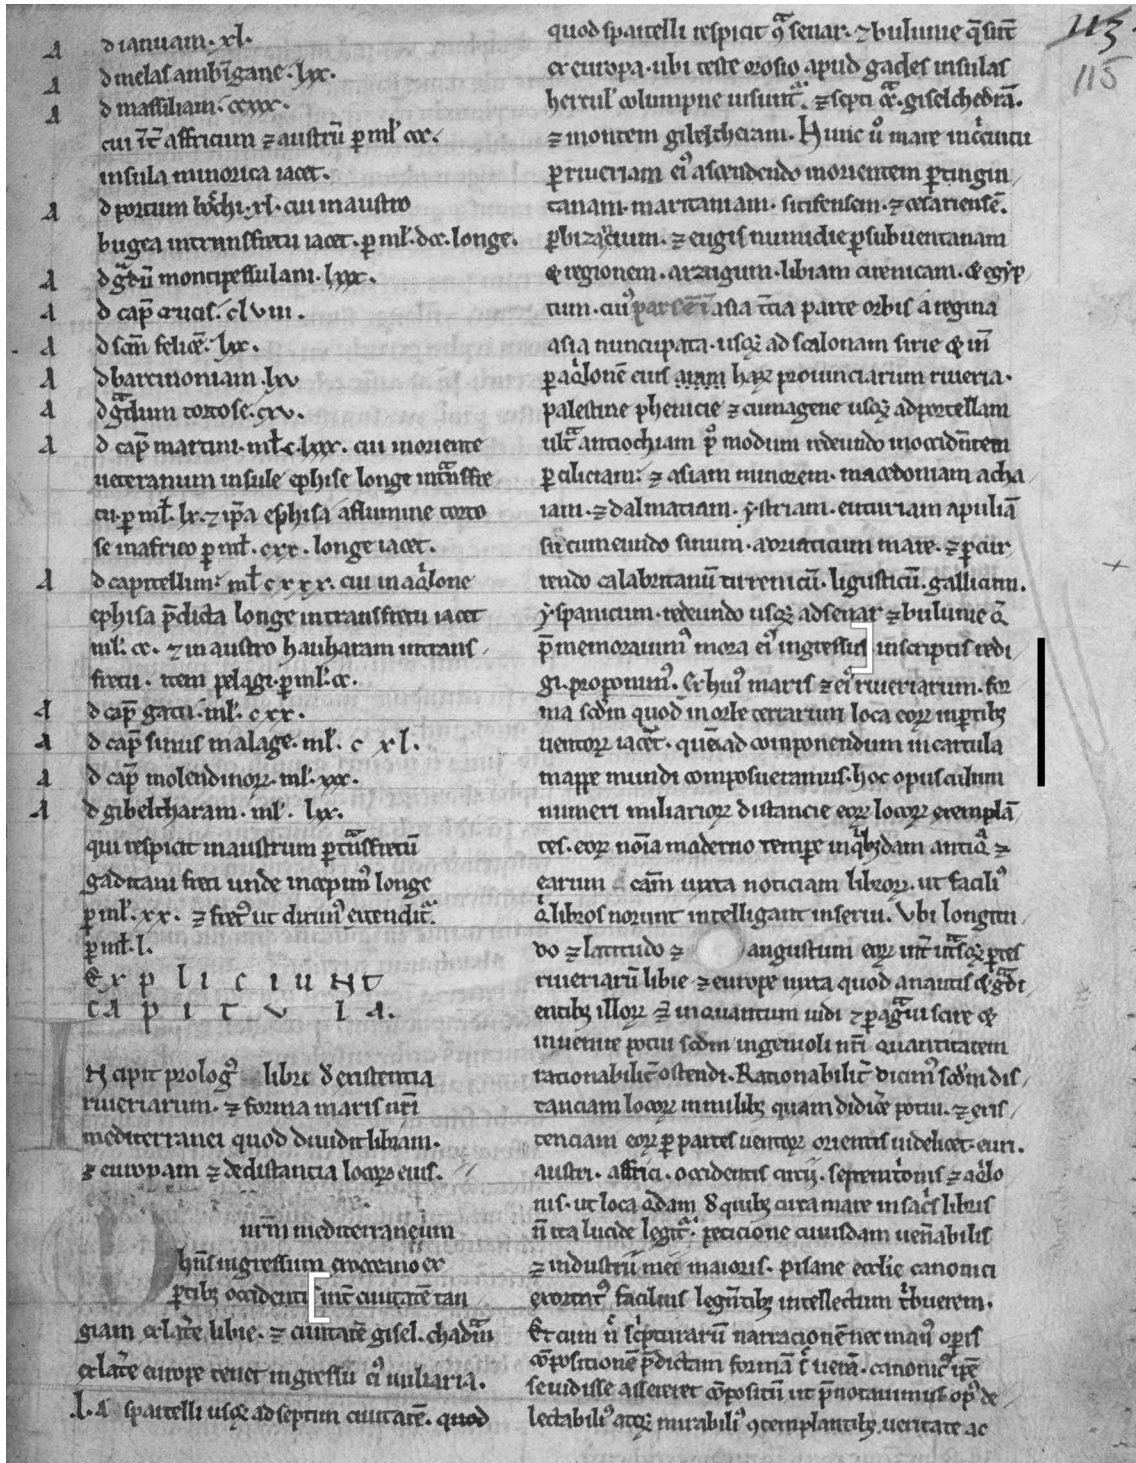 113
115
A d ianuam. xl.
A d melas ambigane. lxx.
A d massiliam. ccxxx.
cui affricum ⁊ austrū p ml' ccc.
insula minorica iacet.
A d portum bochi. xl. cui in austro
bugea in transfretu iacet. p ml'. dcc. longe.
A d gdū montipessulani. lxxx.
A d cap̄ crucis. clviii.
A d scm̄ felicē. lxx.
A d barcinoniam. lxv
A d gdium tortose. cxv.
A d cap̄ martini. ml' c. lxxx. cui in oriente
ueteranum insule ephise longe intnsfre
tu. p ml'. lx. ⁊ ip̄a ephisa a flumine torto
se in africo p ml'. cxx. longe iacet.
A d capitellum. ml' cxxx. cui in aqlone
ephisa p̄dicta longe in transfretu iacet
ml'. cc. ⁊ in austro hauharam in trans
fretu. item pelagi. p ml'. cc.
A d cap̄ gatti. ml'. cxx.
A d cap̄ sinus malage. ml'. cxl.
A d cap̄ molendinoꝝ. ml'. xxx.
A d gibelcharam. ml'. lxx.
qui respicit in austrum p tnsfretū
gaditani freti unde incepim' longe
p ml'. xx. ⁊ fret' ut dixim' extendit.
p ml'. l.
EXPLICIUNT
CAPITVLA.
INcipit prolog' libri de existentia
riueriarum. ⁊ forma maris nr̄i
mediterranei quod diuidit libiam.
⁊ europam ⁊ de distancia locoꝝ eius.
urm̄ mediterraneum
hn̄s ingressum ex occeano ex
ptibꝫ occidenti int' ciuitatē tan
giam ex latere libie. ⁊ ciuitatē gisel. chadrā
ex latere europe tenet ingressū ei' miliaria.
l. a spartelli usqꝫ ad septim ciuitatē. quod
quod spartelli respicit senar. ⁊ bulunie
ex europa. ubi teste orosio apud gades insulas
hercul' columpne uisunt. ⁊ septi giselchedrā.
⁊ montem gilelchciam. Hunc u' mare in circuitu
p riueriam ei' ascendendo in orientem p tingin
tanam. maritaniam. sitifensem. ⁊ cesariensē.
p bizacium. ⁊ eugis numidie p subuentanam
& regionem. arzugum. libiam cirenicam. & egyp
tum. cui' pars asia tc̄ia parte orbis a regina
asia nuncupata. usqꝫ ad scalonam sirie & in
p aqlonē eius aram haꝝ prouinciarum riueria.
palestine phenicie ⁊ cumagene usqꝫ ad portellam
ult' antiochiam p modum redeundo in occidentem
p ciliciam. ⁊ asiam minorem. macedoniam acha
iam. ⁊ dalmatiam. ystriam. etruriam apuliā
circumeundo sinum. adriaticum mare. ⁊ p cur
rendo calabritanū tirenicū. ligusticū. gallicum.
yspanicum. redeundo usqꝫ ad senar ⁊ bulunie
p̄memorauim' mora ei' ingressus in scriptis redi
gi. proponim'. Et hui' maris ⁊ ei' riueriarum. for
ma scdm quod in orbe terrarum loca eoꝝ in ptibꝫ
uentoꝝ iacēt. quē ad componendum in cartula
mappe mundi composueramus. hoc opusculum
numeri miliarioꝝ distancie eoꝝ locoꝝ exemplā
tes. eoꝝ noīa moderno tempore in qbꝫdam antiq ⁊
earum cām iuxta noticiam libroꝝ. ut facili'
q libros norunt intelligant inserui. Vbi longitu
do ⁊ latitudo ⁊ angustum eoꝝ int' utrasqꝫ ptes
riueriarū libie ⁊ europe iuxta quod a nautis & gdi
entibꝫ illoꝝ ⁊ in quantum uidi ⁊ p agui scire &
inuenire potui scdm ingenioli nr̄i quantitatem
rationabilit' ostendi. Rationabilit' dicim' scdm dis
tanciam locoꝝ in milibꝫ quam didicē potui. ⁊ exis
tenciam eoꝝ p partes uentoꝝ orientis uidelicet. euri.
austri. affrici. occidentis circii. septemtrionis ⁊ aqlo
nis. ut loca qdam de quibꝫ circa mare in sacris libris
n̄ ita lucide legit. peticione cuiusdam uen̄abilis
⁊ industrii mei maioris. pisane ecclie canonici
exortat' facilius legentibꝫ intellectum t'buerem.
Et cum n̄ scripturarū narracionē nec man' operis
compositionē p̄dictam formā uerā. canonic' ip̄e
se uidisse assereret compositū ut p̄notauimus op' de
lectabili' atqꝫ mirabili' contemplantibꝫ ueritate ac